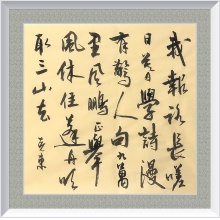 我報路長嗟
日暮學詩漫
有驚人句九萬
里風鵬正舉
風休住蓬舟吹
取三山去